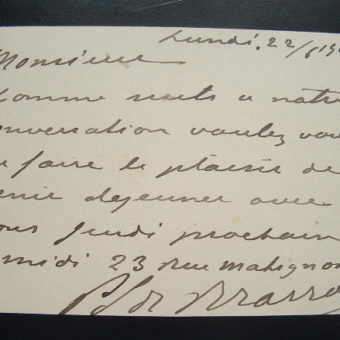 Lundi. 22/6
Monsieur
comme suite a notre
conversation voulez vous
faire le plaisir de
venir dejeuner avec
nous Jeudi prochain
midi 23 rue Matignon